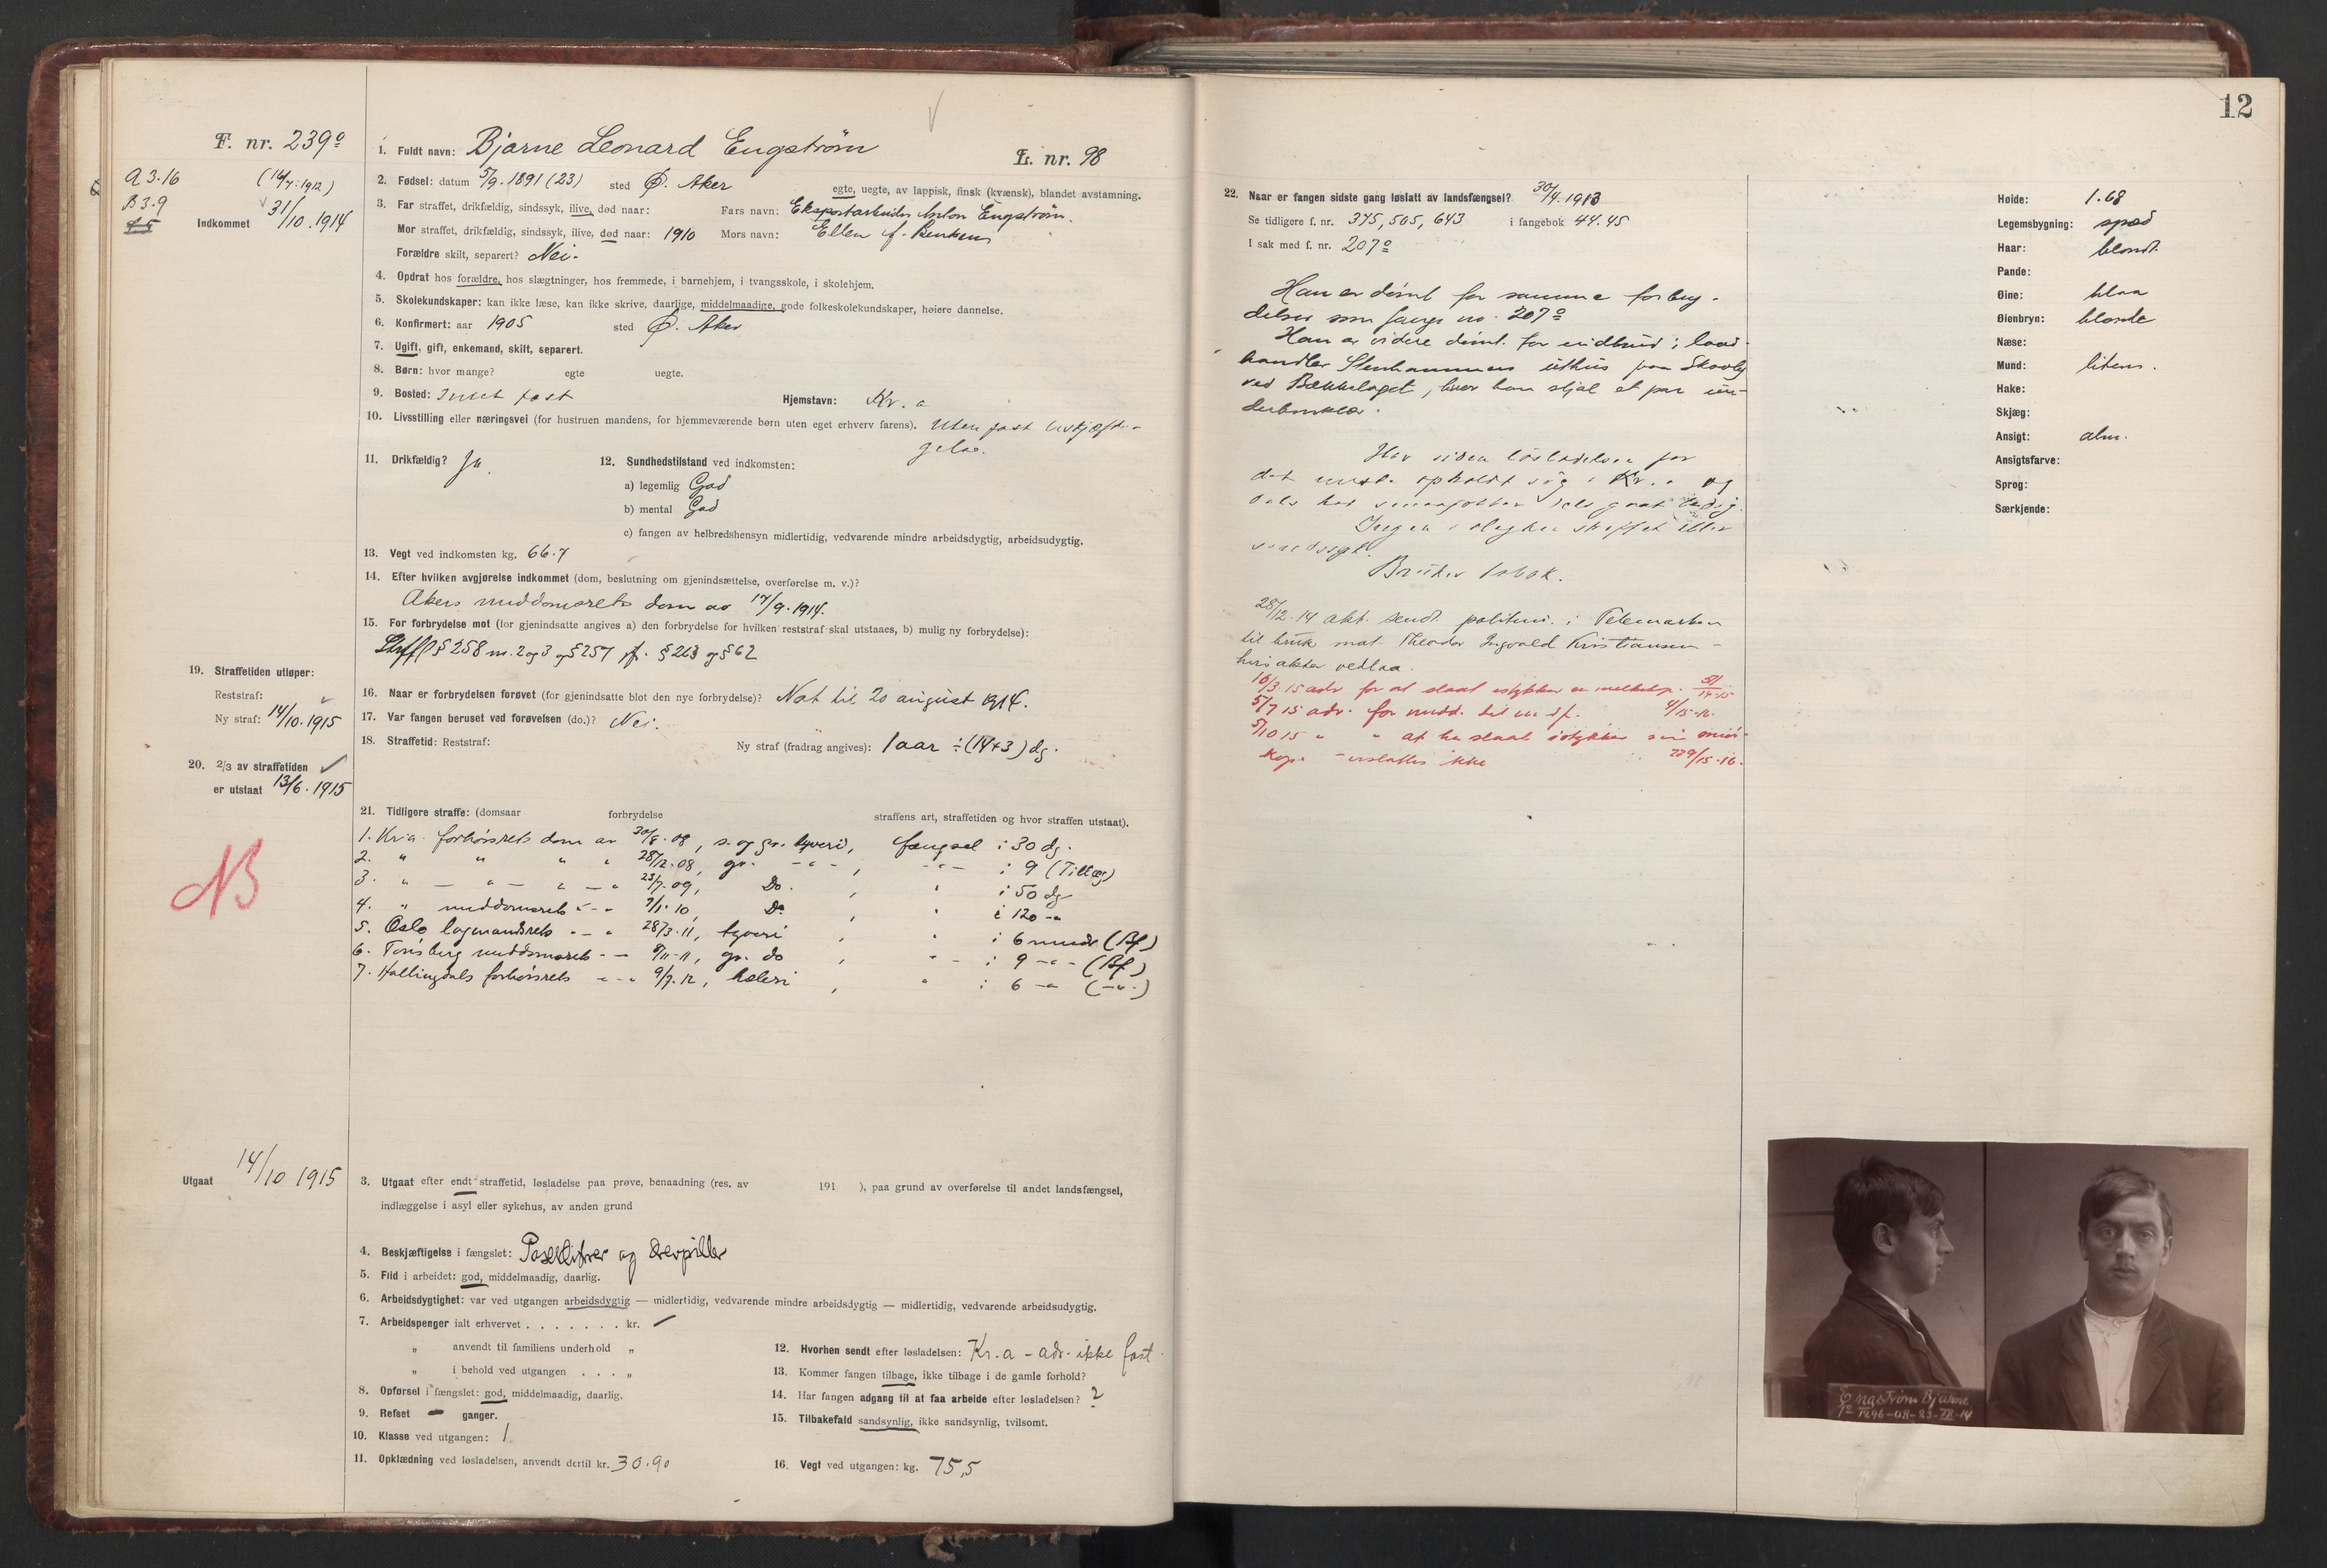 F. nr. 239º
A 3.16
(14/7.1912)
B 3.9
Indkommet 31/10.1914
1. Fuldt navn: Bjarne Leonard Engström
L. nr. 98
2. Fødsel: datum 5/9.1891 (23) sted Ø. Aker egte, uegte, av lappisk, finsk (kvænsk), blandet avstamning.
3. Far straffet, drikfældig, sindssyk, ilive, død naar: Fars navn: Anton Engström.
Mor straffet, drikfældig, sindssyk, ilive, død naar: 1910 Mors navn: Ellen f.
Forældre skilt, separert? Nei.
4. Opdrat hos forældre, hos slægtninger, hos fremmede, i barnehjem, i tvangsskole, i skolehjem.
5. Skolekundskaper: kan ikke læse, kan ikke skrive, daarlige, middelmaadige, gode folkeskolekundskaper, høiere dannelse.
6. Konfirmert: aar 1905 sted Ø. Aker
7. Ugift, gift, enkemand, skilt, separert.
8. Børn: hvor mange? egte uegte.
9. Bosted: Intet fast Hjemstavn: Kr.a
10. Livsstilling eller næringsvei (for hustruen mandens, for hjemmeværende børn uten eget erhverv farens). Uten fast beskjæfti-
gelse.
11. Drikfældig? Ja.
12. Sundhedstilstand ved indkomsten:
a) legemlig God
b) mental God
c) fangen av helbredshensyn midlertidig, vedvarende mindre arbeidsdygtig, arbeidsudygtig.
13. Vegt ved indkomsten kg. 66.7
14. Efter hvilken avgjørelse indkommet (dom, beslutning om gjenindsættelse, overførelse m. v.)?
Akers meddomsrets dom av 17/9.1914.
15. For forbrydelse mot (for gjenindsatte angives a) den forbrydelse for hvilken reststraf skal utstaaes, b) mulig ny forbrydelse):
Strffl § 258 nr. 2 og 3 og § 257 jfr. § 263 og § 62
16. Naar er forbrydelsen forøvet (for gjenindsatte blot den nye forbrydelse)? Nat til 20 august 1914.
17. Var fangen beruset ved forøvelsen (do.)? Nei.
18. Straffetid: Reststraf: Ny straf (fradrag angives): 1 aar ÷ (14+3) dg.
19. Straffetiden utløper:
Reststraf:
Ny straf: 14/10.1915
20. 2/3 av straffetiden
er utstaat 13/6.1915
21. Tidligere straffe: (domsaar forbrydelse straffens art, straffetiden og hvor straffen utstaat).
1. Kr.a forhørsrets dom av 30/8.08, s. og gr. tyveri, fængsel i 30 dg.
2. " " " " 28/12.08, gr. - " - , - " - i 9 (Tillæg)
3. " - " - " - " 23/7.09, Do. , " i 50 dg
4. " meddomsrets " - " 7/1.10, Do , " i 120 - "
5. Oslo lagmandsrets - " - " 28/3.11, tyveri , " i 6 mndr (Bf)
6. Tønsberg meddomsrets - " - 8/11-11, gr. do , " i 9 - " - (Bf)
7. Hallingdals forhørsrets - " - " 9/7.12, hæleri , " i 6 - " (- " -)
NB
Utgaat 14/10 1915
3. Utgaat efter endt straffetid, løsladelse paa prøve, benaadning (res. av 191 ), paa grund av overførelse til andet landsfængsel,
indlæggelse i asyl eller sykehus, av anden grund
4. Beskjæftigelse i fængslet: og drevpiller
5. Flid i arbeidet: god, middelmaadig, daarlig.
6. Arbeidsdygtighet: var ved utgangen arbeidsdygtig — midlertidig, vedvarende mindre arbeidsdygtig — midlertidig, vedvarende arbeidsudygtig.
7. Arbeidspenger ialt erhvervet . . . . . . . kr. -
" anvendt til familiens underhold "
" i behold ved utgangen . . . . "
8. Opførsel i fængslet: god, middelmaadig, daarlig.
9. Refset - ganger.
10. Klasse ved utgangen: 1
11. Opklædning ved løsladelsen, anvendt dertil kr. 30.90
12. Hvorhen sendt efter løsladelsen: Kr.a - adr. ikke fast.
13. Kommer fangen tilbage, ikke tilbage i de gamle forhold?
14. Har fangen adgang til at faa arbeide efter løsladelsen? ?
15. Tilbakefald sandsynlig, ikke sandsynlig, tvilsomt.
16. Vegt ved utgangen: kg. 75,5
12
22. Naar er fangen sidste gang løslatt av landsfængsel? 30/4.1913
Se tidligere f. nr. 375, 505, 643 i fangebok 44.45
I sak med f. nr. 207º
Han er dömt for samme forbry-
delser som fange no. 207º
Han er videre dömt for indbrud i land-
handler Stenhammers uthus paa Skovly
ved Bækkelaget, hvor han stjal et par un-
derbenklær.
Har siden lösladelsen for
det meste opholdt sig i Kr.a og
dels hat smaajobber dels gaat ledig.
Ingen i slegten straffet eller
sindssyk.
Bruker tobak.
28/12.14 akt. sendt politim. i Telemarken
til bruk mot Theodor Ingvald Kristiansen -
hvis akter vedlaa.
16/3.15 adv for at slaat istykker en 51/14-15
5/7 15 adv. for medd. til 4/15-16.
5/10 15 " " at ha slaat istykker sin
kop. - erstattes ikke 229/15-16.
Høide: 1.68
Legemsbygning: spæd
Haar: blondt.
Pande:
Øine: blaa
Øienbryn: blonde
Næse:
Mund: liten.
Hake:
Skjæg:
Ansigt: alm.
Ansigtsfarve:
Sprog:
Særkjende:
Engström Bjarne